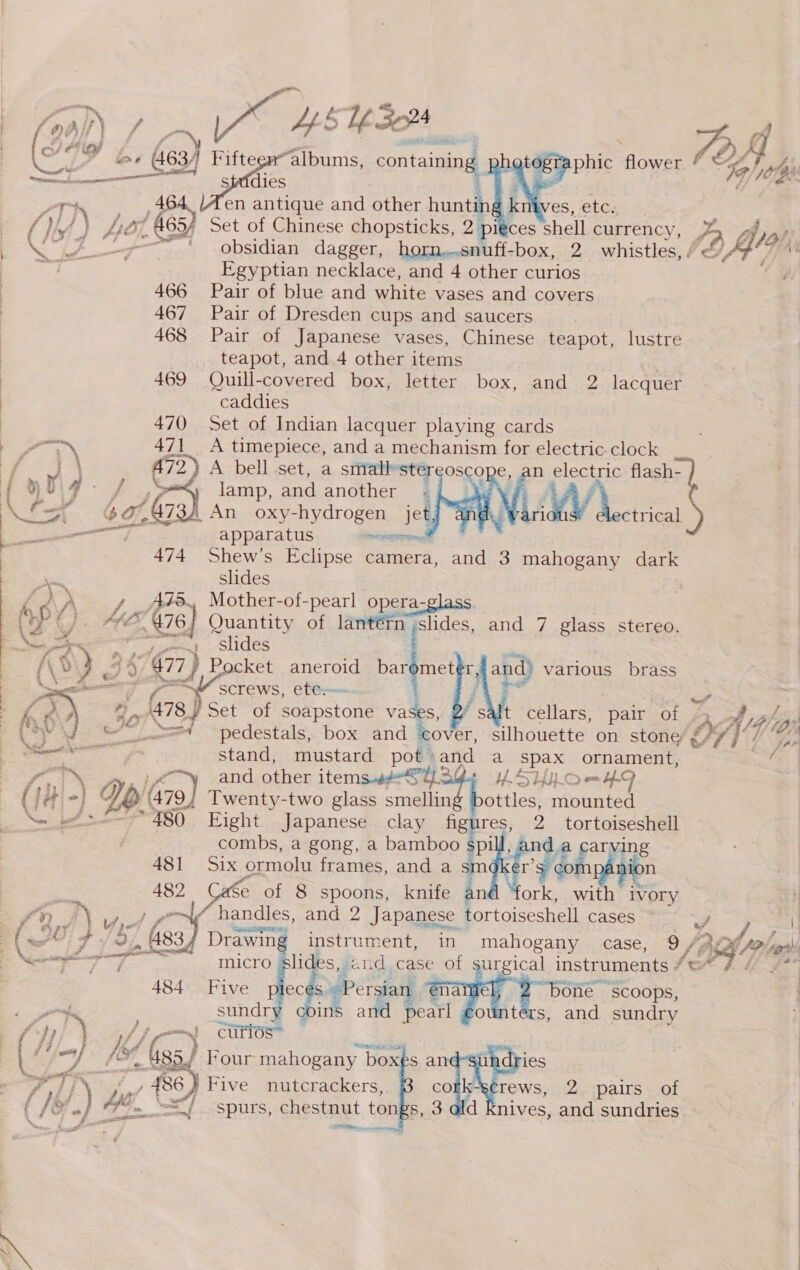 24
463 Fifteen albums, containing photographic flower
studies
464 Ten antique and other hunting knives, etc.
465 Set of Chinese chopsticks, 2 pieces shell currency,
obsidian dagger, horn snuff-box, 2 whistles,
Egyptian necklace, and 4 other curios
466 Pair of blue and white vases and covers
467 Pair of Dresden cups and saucers
468 Pair of Japanese vases, Chinese teapot, lustre
teapot, and 4 other items
469 Quill-covered box, letter box, and 2 lacquer
caddies
470 Set of Indian lacquer playing cards
471 A timepiece, and a mechanism for electric clock
472 A bell set, a small stereoscope, an electric flash-
lamp, and another
473 An oxy-hydrogen jet, and various electrical
apparatus
474 Shew's Eclipse camera, and 3 mahogany dark
slides
475 Mother-of-pearl opera-glass
476 Quantity of lantern slides, and 7 glass stereo.
slides
477 Pocket aneroid barometer, and various brass
screws, etc.
478 Set of soapstone vases, 2 salt cellars, pair of
pedestals, box and cover, silhouette on stone
stand, mustard pot and a spax ornament,
and other items
479 Twenty-two glass smelling bottles, mounted
480 Eight Japanese clay figures, 2 tortoiseshell
combs, a gong, a bamboo spill, and a carving
481 Six ormolu frames, and a smoker's companion
482 Case of 8 spoons, knife and fork, with ivory
handles, and 2 Japanese tortoiseshell cases
483 Drawing instrument, in mahogany case, 9
micro slides, and case of surgical instruments
484 Five pieces Persian enamel, 2 bone scoops,
sundry coins and pearl counters, and sundry
curios
485 Four mahogany boxes and sundries
486 Five nutcrackers, 3 cork-screws, 2 pairs of
spurs, chestnut tongs, 3 old knives, and sundries